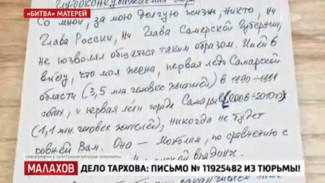 «БИТВА» МАТЕРЕЙ
Со мной, за мою долгую жизнь, никто, ни
Глава России, ни Глава Самарской Губернии,
не позволял общаться таким образом. Имей в
виду, что моя жена, первая леди Самарской
области (3,5 млн человек жителей) в 1990-1991
годах, и первая леди города Самары (2006-2010гг)
(1,1 млн человек жителей), никогда не будет
ровней Вам. Она — по сравнению с
МАЛАХОВ
ДЕЛО ТАРХОВА: ПИСЬМО № 11925482 ИЗ ТЮРЬМЫ!